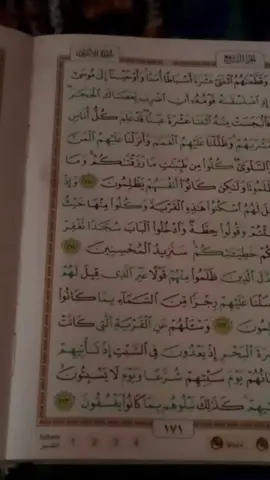 الجزء التاسع
سورة الأعراف
وَقَطَّعْنَٰهُمُ ٱثْنَتَىْ عَشْرَةَ أَسْبَاطًا أُمَمًا وَأَوْحَيْنَآ إِلَىٰ مُوسَىٰٓ
إِذِ ٱسْتَسْقَىٰهُ قَوْمُهُۥٓ أَنِ ٱضْرِب بِّعَصَاكَ ٱلْحَجَرَ
فَٱنۢبَجَسَتْ مِنْهُ ٱثْنَتَا عَشْرَةَ عَيْنًا قَدْ عَلِمَ كُلُّ أُنَاسٍ
مَّشْرَبَهُمْ وَظَلَّلْنَا عَلَيْهِمُ ٱلْغَمَٰمَ وَأَنزَلْنَا عَلَيْهِمُ ٱلْمَنَّ
وَٱلسَّلْوَىٰ كُلُوا۟ مِن طَيِّبَٰتِ مَا رَزَقْنَٰكُمْ وَمَا
ظَلَمُونَا وَلَٰكِن كَانُوٓا۟ أَنفُسَهُمْ يَظْلِمُونَ ١٦٠ وَإِذْ
قِيلَ لَهُمُ ٱسْكُنُوا۟ هَٰذِهِ ٱلْقَرْيَةَ وَكُلُوا۟ مِنْهَا حَيْثُ
شِئْتُمْ وَقُولُوا۟ حِطَّةٌ وَٱدْخُلُوا۟ ٱلْبَابَ سُجَّدًا نَّغْفِرْ
لَكُمْ خَطِيٓـَٰٔتِكُمْ سَنَزِيدُ ٱلْمُحْسِنِينَ ١٦١
فَبَدَّلَ ٱلَّذِينَ ظَلَمُوا۟ مِنْهُمْ قَوْلًا غَيْرَ ٱلَّذِى قِيلَ لَهُمْ
فَأَرْسَلْنَا عَلَيْهِمْ رِجْزًا مِّنَ ٱلسَّمَآءِ بِمَا كَانُوا۟
يَظْلِمُونَ ١٦٢ وَسْـَٔلْهُمْ عَنِ ٱلْقَرْيَةِ ٱلَّتِى كَانَتْ
حَاضِرَةَ ٱلْبَحْرِ إِذْ يَعْدُونَ فِى ٱلسَّبْتِ إِذْ تَأْتِيهِمْ
حِيتَانُهُمْ يَوْمَ سَبْتِهِمْ شُرَّعًا وَيَوْمَ لَا يَسْبِتُونَ
لَا تَأْتِيهِمْ كَذَٰلِكَ نَبْلُوهُم بِمَا كَانُوا۟ يَفْسُقُونَ ١٦٣
١٧١
1 2 3 4